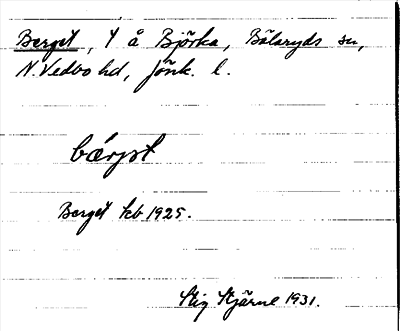 Berget, t å Björka, Bälaryds sn,
N. Vedbo hd, Jönk. l.
bærjət
Berget kb 1925.
Stig Stjärne 1931.